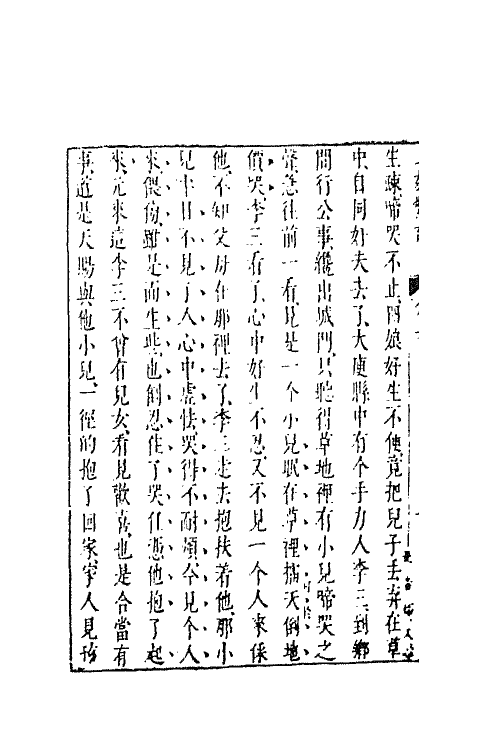 生疎啼哭不止那娘好生不便竟把兒子丟弃在草
中自同奸夫去了大庾縣中有个手力人李三到鄉
間行公事纔出城門只聽得草地裡有小兒啼哭之
聲急往前一看見是一个小兒眠在草裡擂天倒地
價哭李三看了心中好生不忍又不見一个人來倸
他不知父母在那裡去了李三走去抱扶着他那小
兒半日不見了人心中虛怯哭得不耐煩今見个人
來偎傍雖是面生些也倒忍住了哭任憑他抱了起
來元來這李三不曾有兒女看見歡喜也是合當有
事道是天賜與他小兒一徑的抱了回家家人見孩